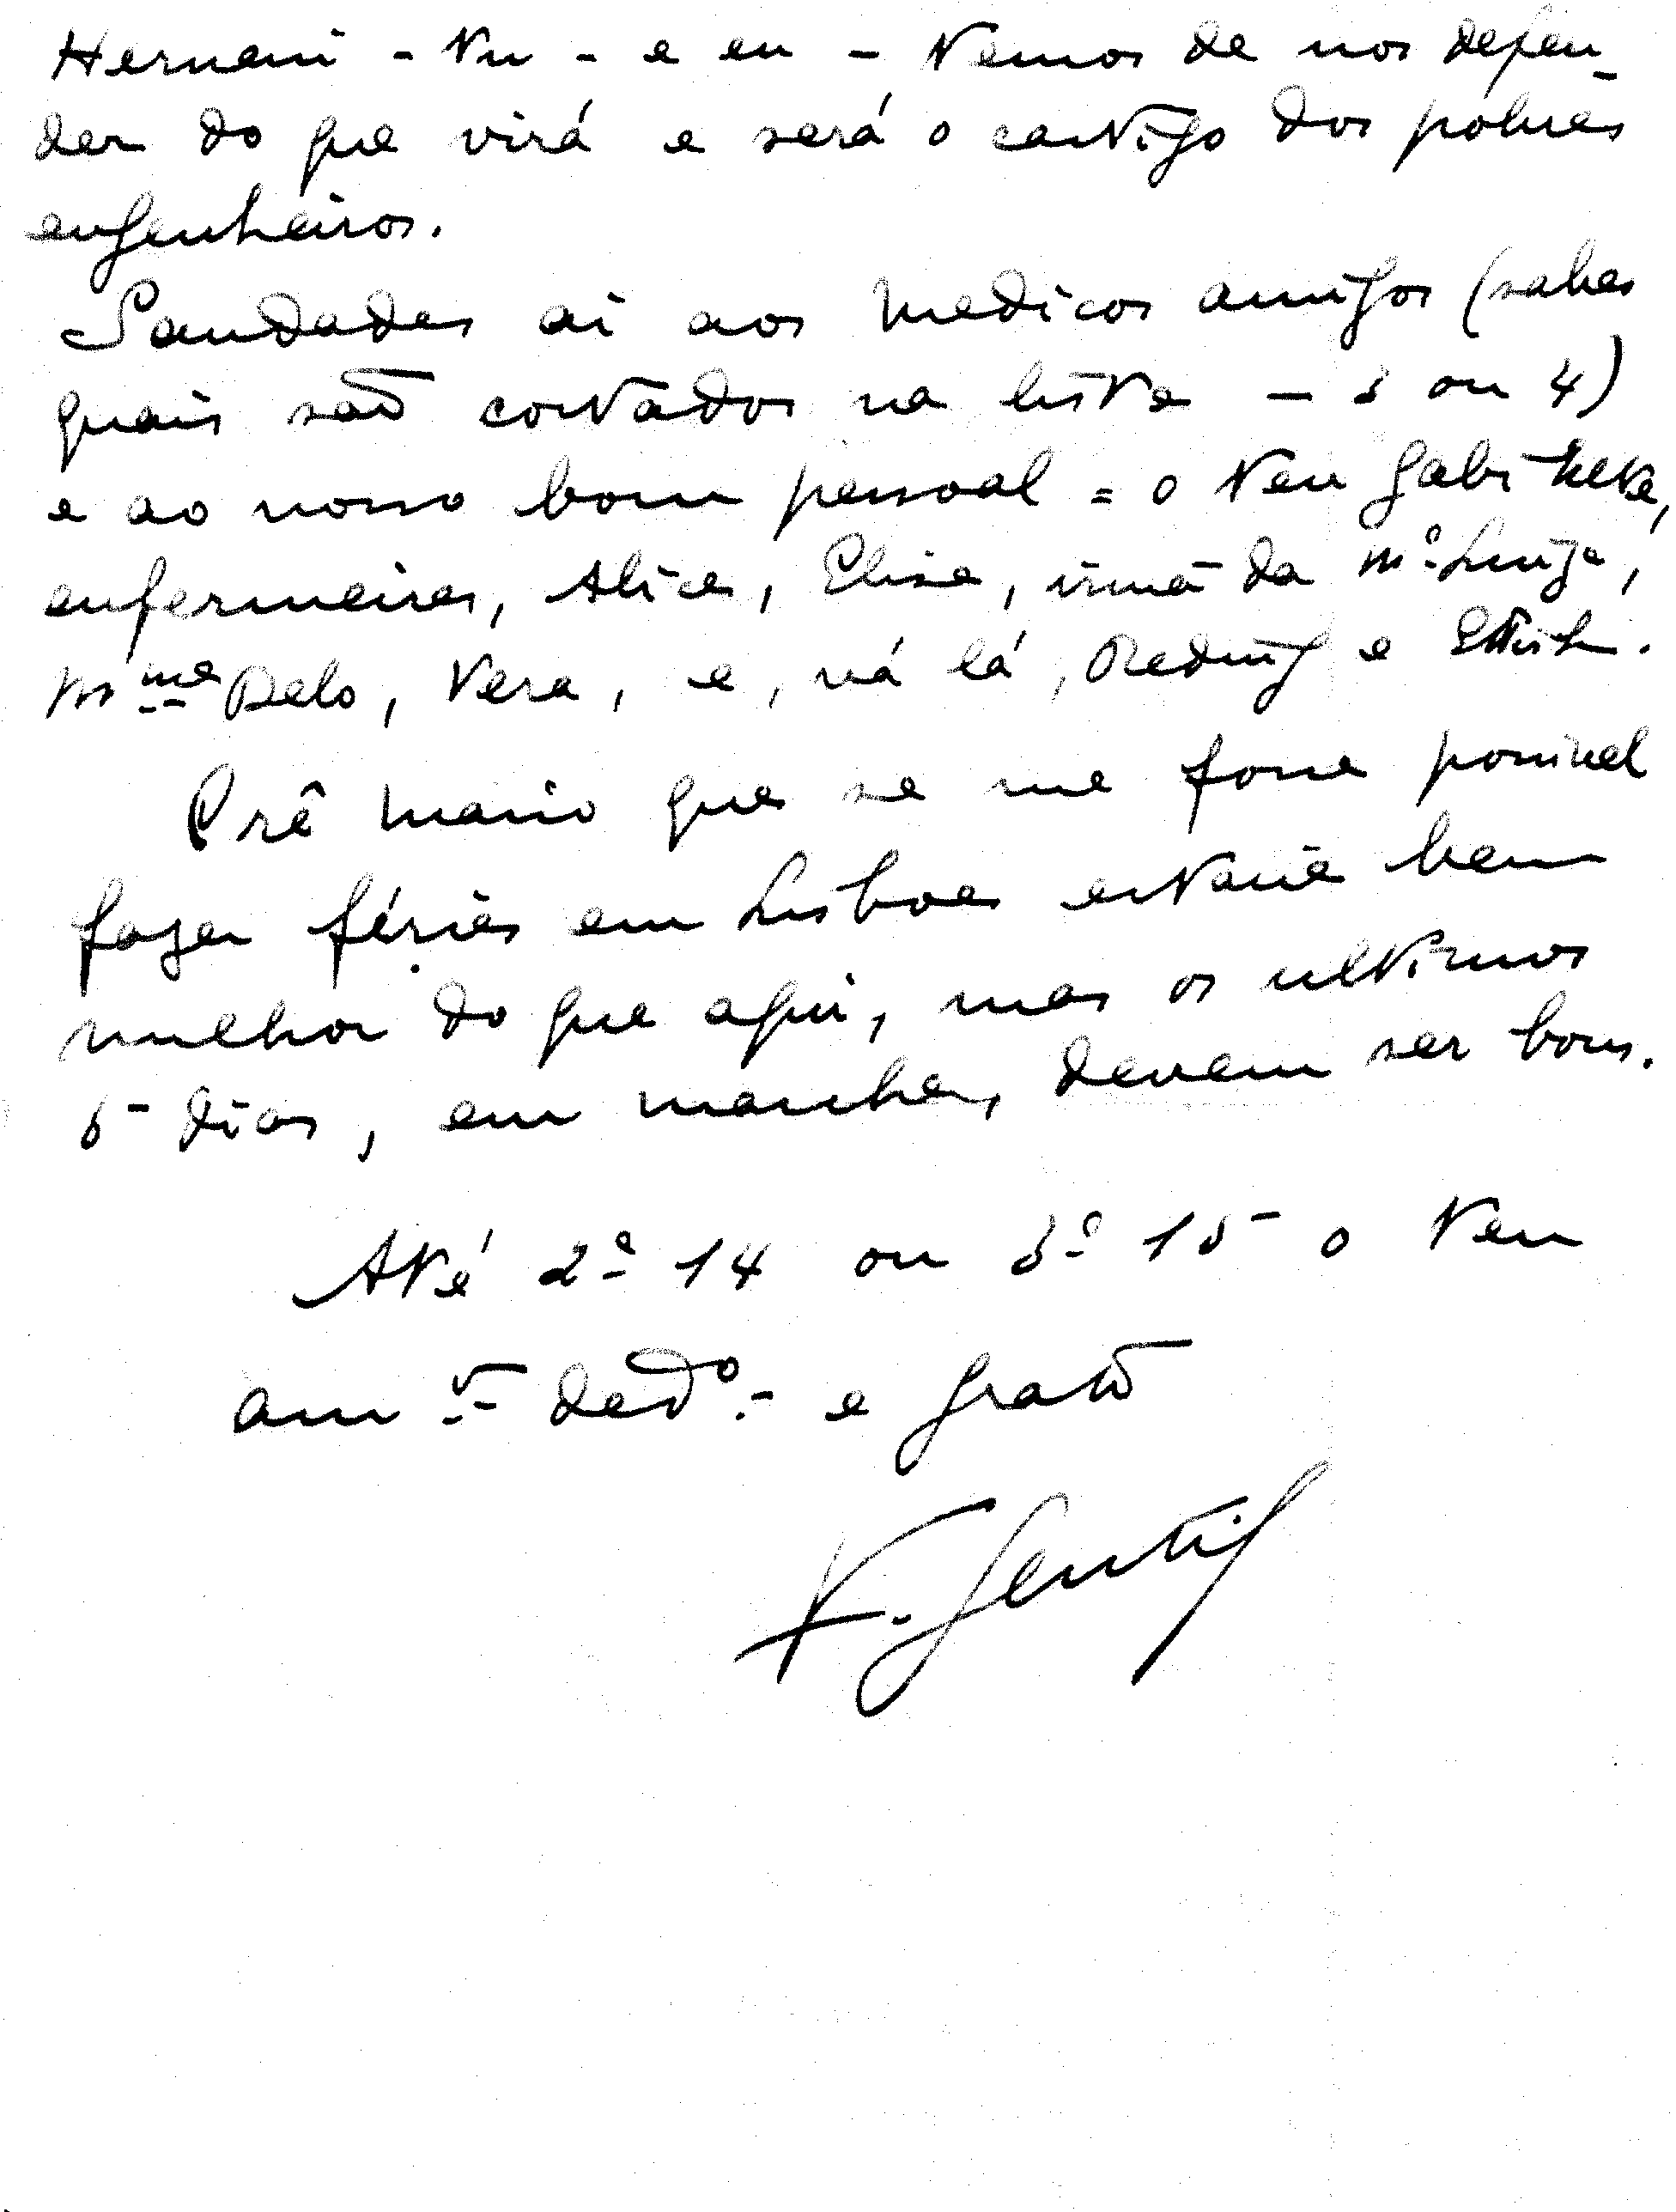 Hernani - tu - e eu - temos de nos defen-
der do que virá e será o castigo dos pobres
engenheiros.
Saudades ai aos medicos amigos (sabes
quais são contados na lista - 3 ou 4)
e ao nosso bom pessoal = o teu gabinete,
enfermeiras, Alice, Elisa, irmã da Mª Luiza,
Mme Delo, Vera, e, vá lá, Reding e
Crê Mario que se me fosse possivel
fazer férias em Lisboa estaria bem
melhor do que aqui, mas os ultimos
5 dias, em marcha, devem ser bons.
Até 2ª 14 ou 3ª 15 o teu
amº dedº e grato
F. Gentil